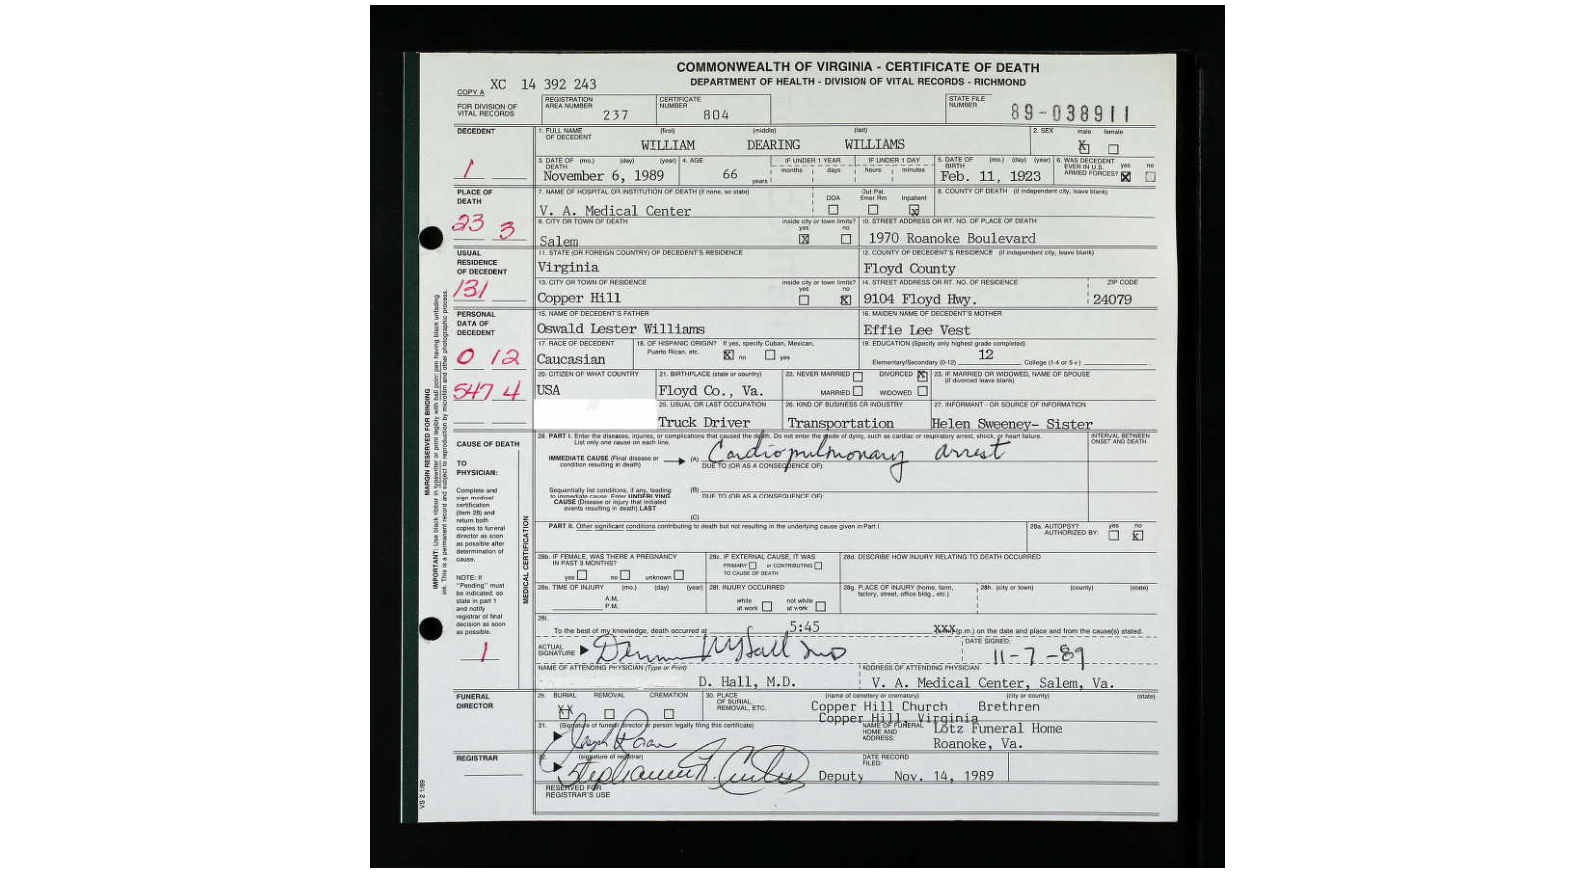 COMMONWEALTH OF VIRGINIA - CERTIFICATE OF DEATH
DEPARTMENT OF HEALTH - DIVISION OF VITAL RECORDS - RICHMOND
XC 14 392 243
COPY A
FOR DIVISION OF VITAL RECORDS
REGISTRATION AREA NUMBER 237
CERTIFICATE NUMBER 804
STATE FILE NUMBER 89-038911
DECEDENT
1
1. FULL NAME OF DECEDENT (first) (middle) (last)
WILLIAM DEARING WILLIAMS
2. SEX male female
X
3. DATE OF DEATH (mo.) (day) (year)
November 6, 1989
4. AGE 66 years
IF UNDER 1 YEAR months days
IF UNDER 1 DAY hours minutes
5. DATE OF BIRTH (mo.) (day) (year)
Feb. 11, 1923
6. WAS DECEDENT EVER IN U.S. ARMED FORCES? yes no
X
PLACE OF DEATH
23 3
7. NAME OF HOSPITAL OR INSTITUTION OF DEATH (if none, so state)
V. A. Medical Center
DOA Out Pat. Emer Rm Inpatient
X
8. COUNTY OF DEATH (if independent city, leave blank)
9. CITY OR TOWN OF DEATH
Salem
inside city or town limits? yes no
X
10. STREET ADDRESS OR RT. NO. OF PLACE OF DEATH
1970 Roanoke Boulevard
USUAL RESIDENCE OF DECEDENT
131
11. STATE (OR FOREIGN COUNTRY) OF DECEDENT'S RESIDENCE
Virginia
12. COUNTY OF DECEDENT'S RESIDENCE (if independent city, leave blank)
Floyd County
13. CITY OR TOWN OF RESIDENCE
Copper Hill
inside city or town limits? yes no
X
14. STREET ADDRESS OR RT. NO. OF RESIDENCE
9104 Floyd Hwy.
ZIP CODE
24079
PERSONAL DATA OF DECEDENT
0 12
547 4
15. NAME OF DECEDENT'S FATHER
Oswald Lester Williams
16. MAIDEN NAME OF DECEDENT'S MOTHER
Effie Lee Vest
17. RACE OF DECEDENT
Caucasian
18. OF HISPANIC ORIGIN? If yes, specify Cuban, Mexican, Puerto Rican, etc.
X no yes
19. EDUCATION (Specify only highest grade completed)
Elementary/Secondary (0-12) 12 College (1-4 or 5+)
20. CITIZEN OF WHAT COUNTRY
USA
21. BIRTHPLACE (state or country)
Floyd Co., Va.
22. NEVER MARRIED DIVORCED X
MARRIED WIDOWED
23. IF MARRIED OR WIDOWED, NAME OF SPOUSE (if divorced leave blank)
25. USUAL OR LAST OCCUPATION
Truck Driver
26. KIND OF BUSINESS OR INDUSTRY
Transportation
27. INFORMANT - OR SOURCE OF INFORMATION
Helen Sweeney- Sister
CAUSE OF DEATH
TO PHYSICIAN:
Complete and sign medical certification (item 28) and return both copies to funeral director as soon as possible after determination of cause.
NOTE: If "Pending" must be indicated, so state in part 1 and notify registrar of final decision as soon as possible.
1
MEDICAL CERTIFICATION
28. PART I. Enter the diseases, injuries, or complications that caused the death. Do not enter the mode of dying, such as cardiac or respiratory arrest, shock, or heart failure. List only one cause on each line.
INTERVAL BETWEEN ONSET AND DEATH
IMMEDIATE CAUSE (Final disease or condition resulting in death)
(A) Cardiopulmonary arrest
DUE TO (OR AS A CONSEQUENCE OF):
Sequentially list conditions, if any, leading to immediate cause. Enter UNDERLYING CAUSE (Disease or injury that initiated events resulting in death) LAST
(B)
DUE TO (OR AS A CONSEQUENCE OF):
(C)
PART II. Other significant conditions contributing to death but not resulting in the underlying cause given in Part I.
28a. AUTOPSY? AUTHORIZED BY: yes no
X
28b. IF FEMALE, WAS THERE A PREGNANCY IN PAST 3 MONTHS?
yes no unknown
28c. IF EXTERNAL CAUSE, IT WAS
PRIMARY or CONTRIBUTING
TO CAUSE OF DEATH
28d. DESCRIBE HOW INJURY RELATING TO DEATH OCCURRED
28e. TIME OF INJURY (mo.) (day) (year)
A.M.
P.M.
28f. INJURY OCCURRED
while at work not while at work
28g. PLACE OF INJURY (home, farm, factory, street, office bldg., etc.)
28h. (city or town) (county) (state)
28i.
To the best of my knowledge, death occurred at 5:45 XXX(p.m.) on the date and place and from the cause(s) stated.
ACTUAL SIGNATURE
DATE SIGNED:
11-7-89
NAME OF ATTENDING PHYSICIAN (Type or Print)
D. Hall, M.D.
ADDRESS OF ATTENDING PHYSICIAN
V. A. Medical Center, Salem, Va.
FUNERAL DIRECTOR
29. BURIAL REMOVAL CREMATION
XX
30. PLACE OF BURIAL, REMOVAL, ETC. (name of cemetery or crematory) (city or county) (state)
Copper Hill Church Brethren
Copper Hill, Virginia
31. (Signature of funeral director or person legally filing this certificate)
NAME OF FUNERAL HOME AND ADDRESS:
Lotz Funeral Home
Roanoke, Va.
REGISTRAR
32. (signature of registrar)
Deputy
DATE RECORD FILED:
Nov. 14, 1989
RESERVED FOR REGISTRAR'S USE
VS 2 1/89
MARGIN RESERVED FOR BINDING